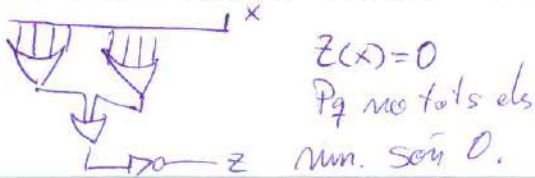 x
Z(x)=0
Pq no tots els
num. són 0.
Z